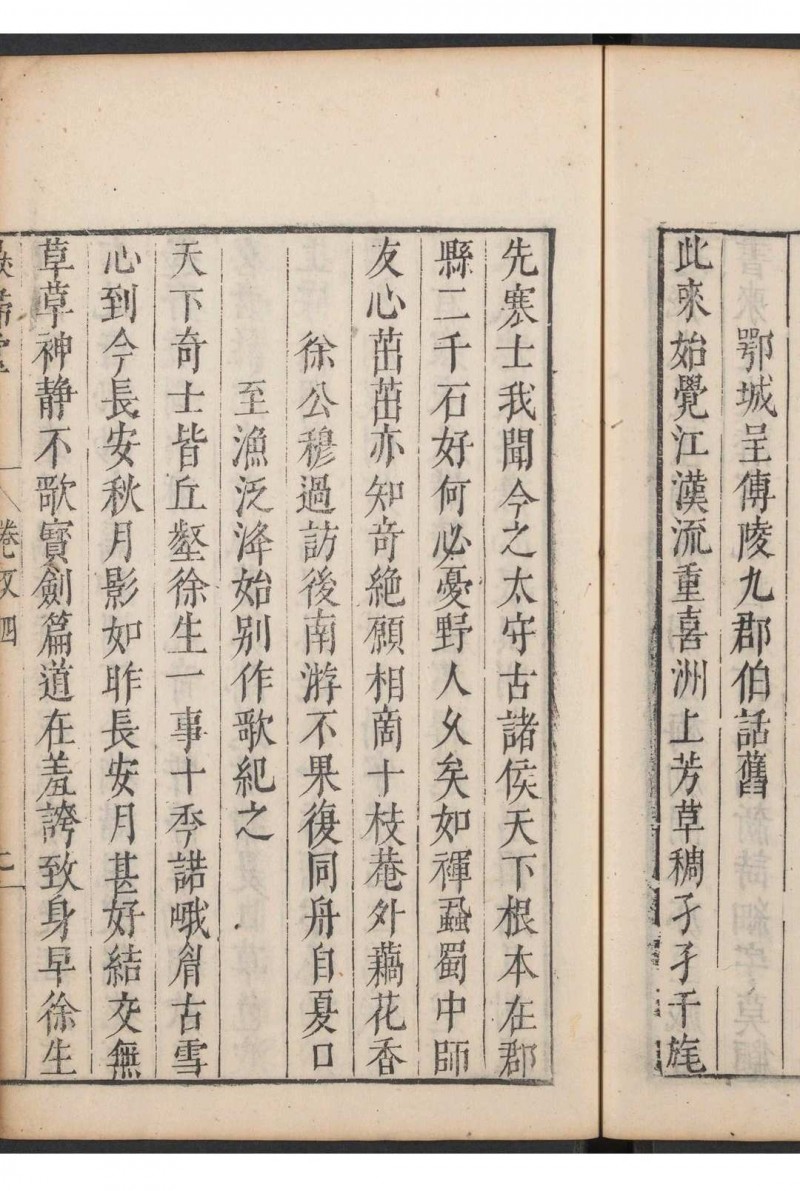 鄂城呈傳陵九郡伯話舊
此來始覺江漢流重喜洲上芳草稠孑孑干旄
先寒士我聞今之太守古諸侯天下根本在郡
縣二千石好何必憂野人久矣如禪蝨蜀中師
友心茁茁亦知奇絶願相啇十枝菴外藕花香
徐公穆過訪後南游不果復同舟自夏口
至漁泛洚始别作歌紀之
天下奇士皆丘壑徐生一事十秊諾峨眉古雪
心到今長安秋月影如昨長安月甚好結交無
草草神静不歌寳劍篇道在羞誇致身早徐生